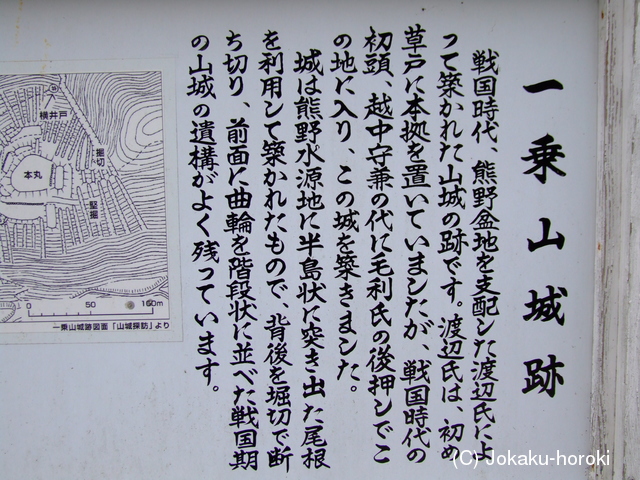 一乗山城跡
戦国時代、熊野盆地を支配した渡辺氏によ
って築かれた山城の跡です。渡辺氏は、初め
草戸に本拠を置いていましたが、戦国時代の
初頭、越中守兼の代に毛利氏の後押しでこ
の地に入り、この城を築きました。
城は熊野水源地に半島状に突き出た尾根
を利用して築かれたもので、背後を堀切で断
ち切り、前面に曲輪を階段状に並べた戦国期
の山城の遺構がよく残っています。
横井戸
堀切り
本丸
竪掘
0 50 100m
一乗山城跡図面「山城探訪」より
(C) Jokaku-horoki